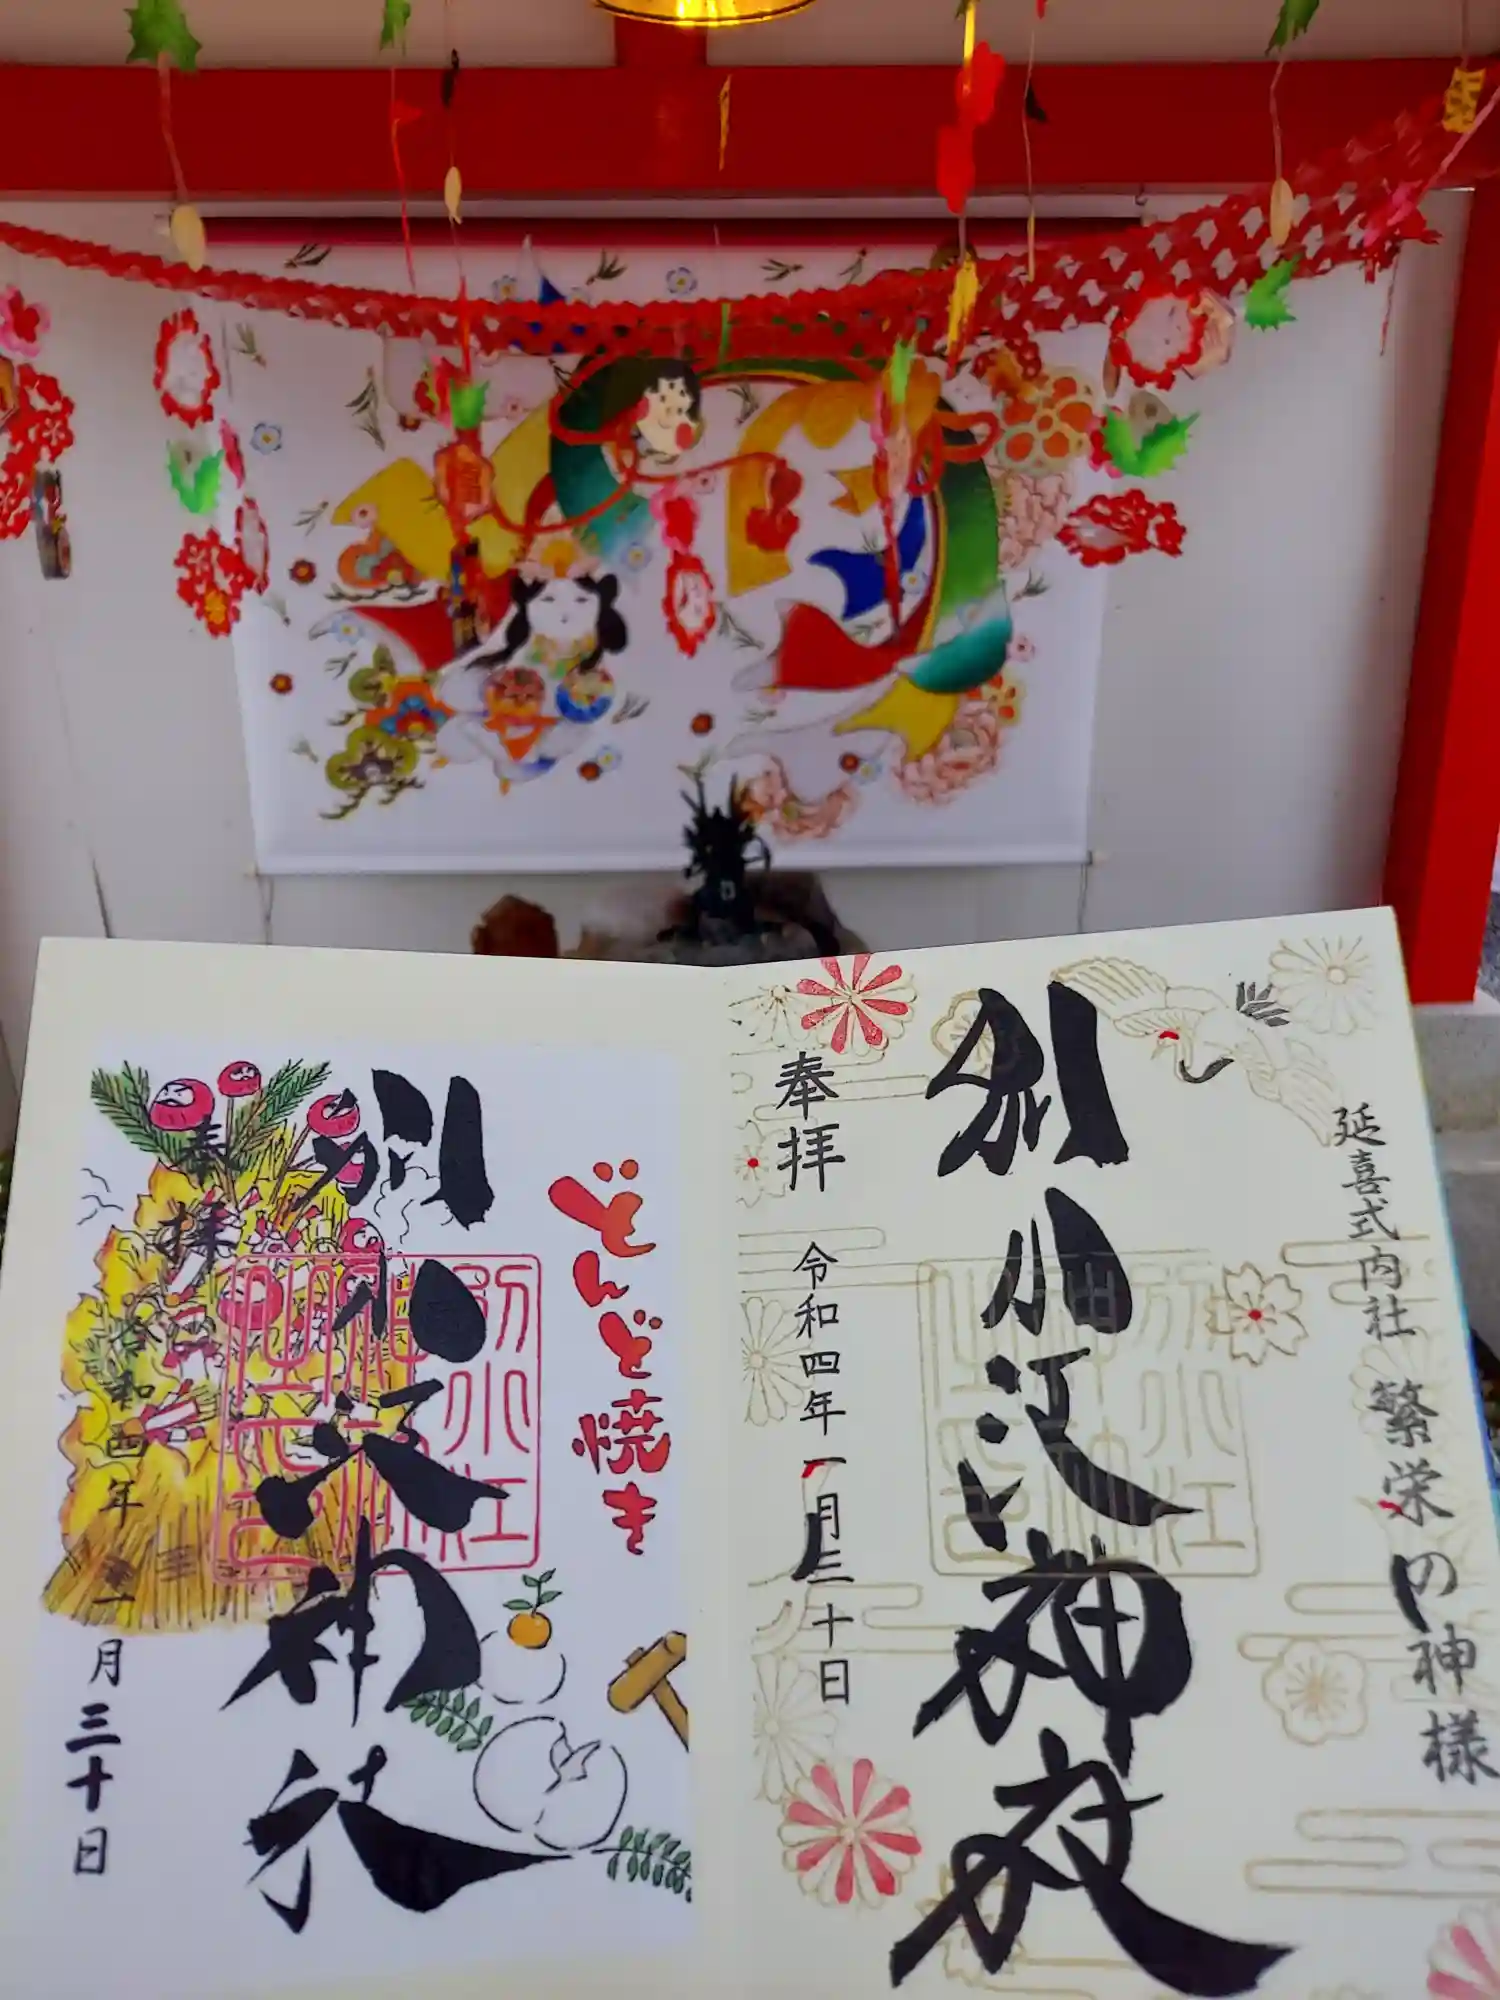 延喜式内社 繁栄の神様
別小江神社
奉拝
令和四年一月三十日
どんど焼き
別小江神社
奉拝
令和四年一月三十日